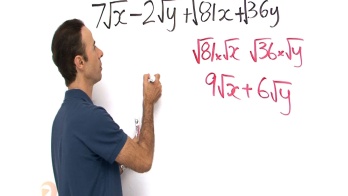 7√x − 2√y + √81x + √36y
√81 × √x √36 × √y
9√x + 6√y